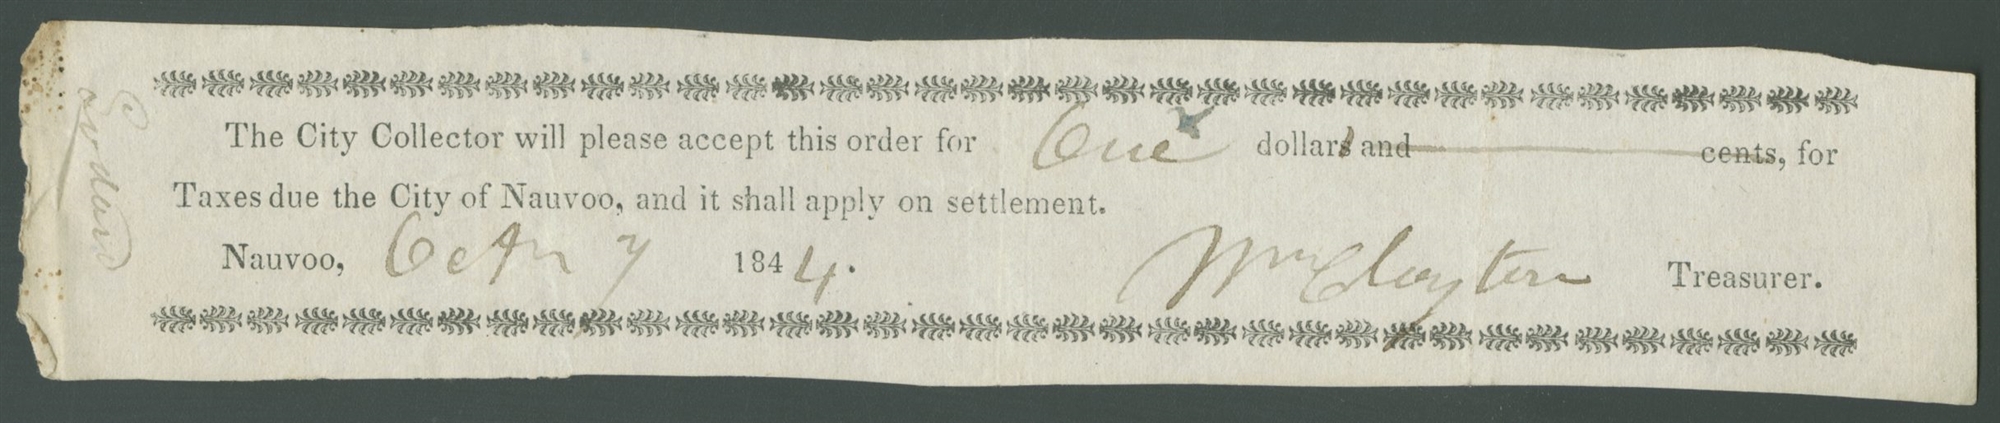 The City Collector will please accept this order for One dollars and cents, for
Taxes due the City of Nauvoo, and it shall apply on settlement.
Nauvoo, 7 1844. Wm Clayton Treasurer.